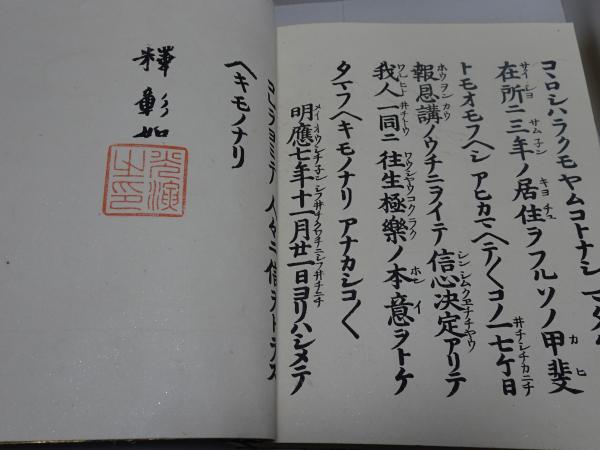 コヽロシハラクモヤムコトナシ
在所ニ三年ノ居住ヲフルソノ甲斐
トモオモフヘシ アヒカマヘテ〳〵コノ一七ケ日
報恩講ノウチニヲイテ信心決定アリテ
我人一同ニ往生極樂ノ本意ヲトケ
タマフヘキモノナリ アナカシコ〳〵
明應七年十一月廿一日ヨリハシメテ
コレヲヨミテ人々ニ信ヲトラス
ヘキモノナリ
釋彰如
光演之印